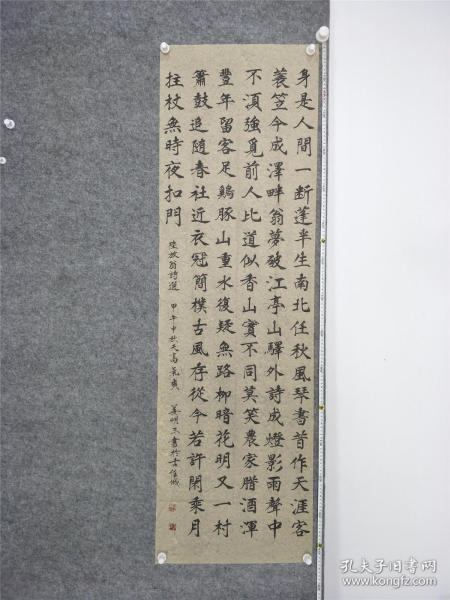 身是人間一断蓬半生南北任秋風琴書昔作天涯客
蓑笠今成澤畔翁夢破江亭山驛外詩成燈影雨聲中
不湏強覓前人比道似香山實不同莫笑農家腊酒渾
豐年留客足鷄豚山重水復疑無路柳暗花明又一村
簫鼓追隨春社近衣冠簡樸古風存從今若許閑乘月
拄杖無時夜扣門
陸放翁詩選 甲午中秋天高氣爽 姜明書於古任城
孔夫子旧书网
www.kongfz.com